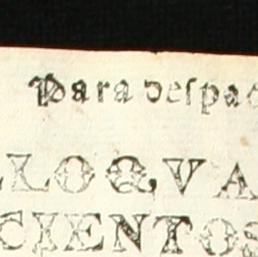 Para deſpac
LLOQVA
CIENTOS